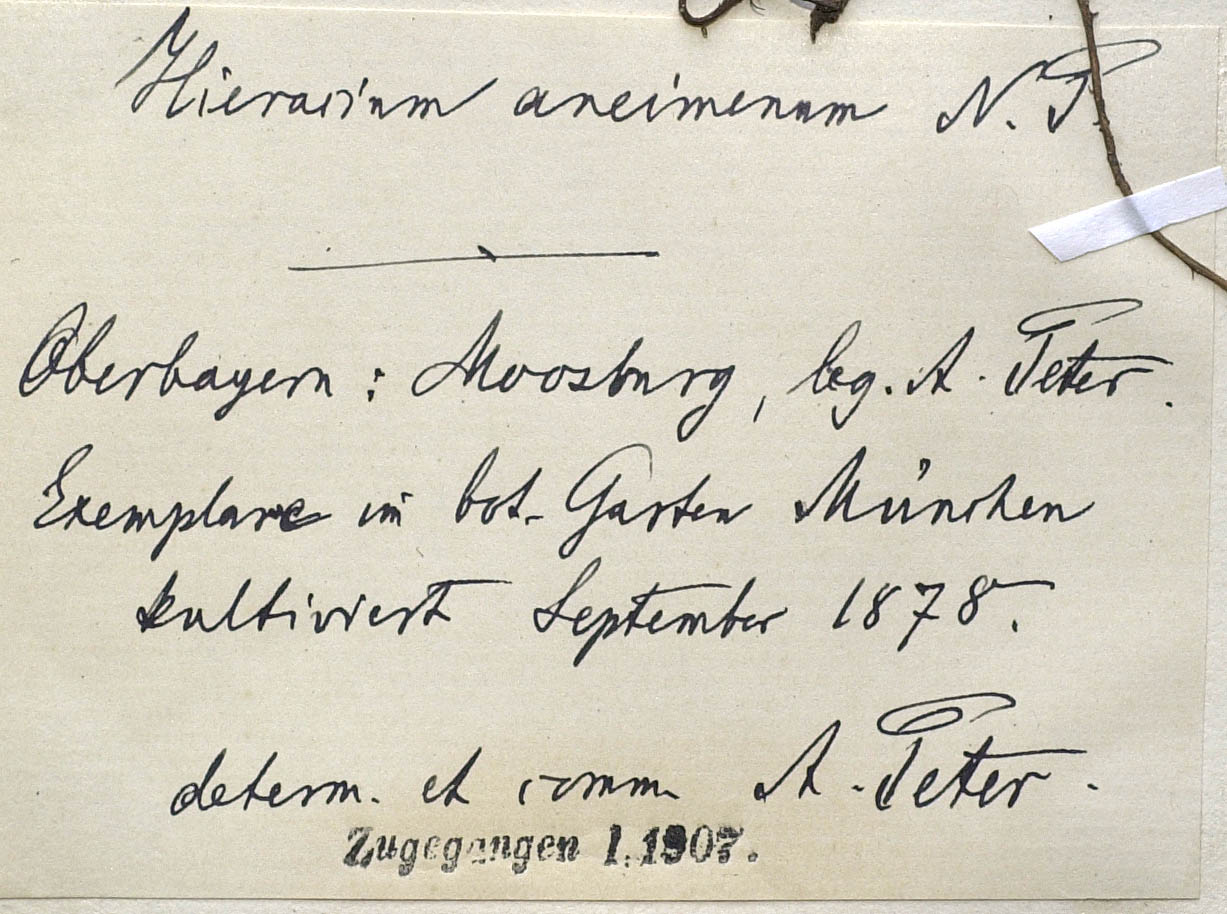 Hieracium aneimenum N. P.
Oberbayern : Moosburg, leg. A. Peter.
Exemplare im bot. Garten München
kultiviert September 1878.
determ. et comm. A. Peter.
Zugegangen 1. 1907.